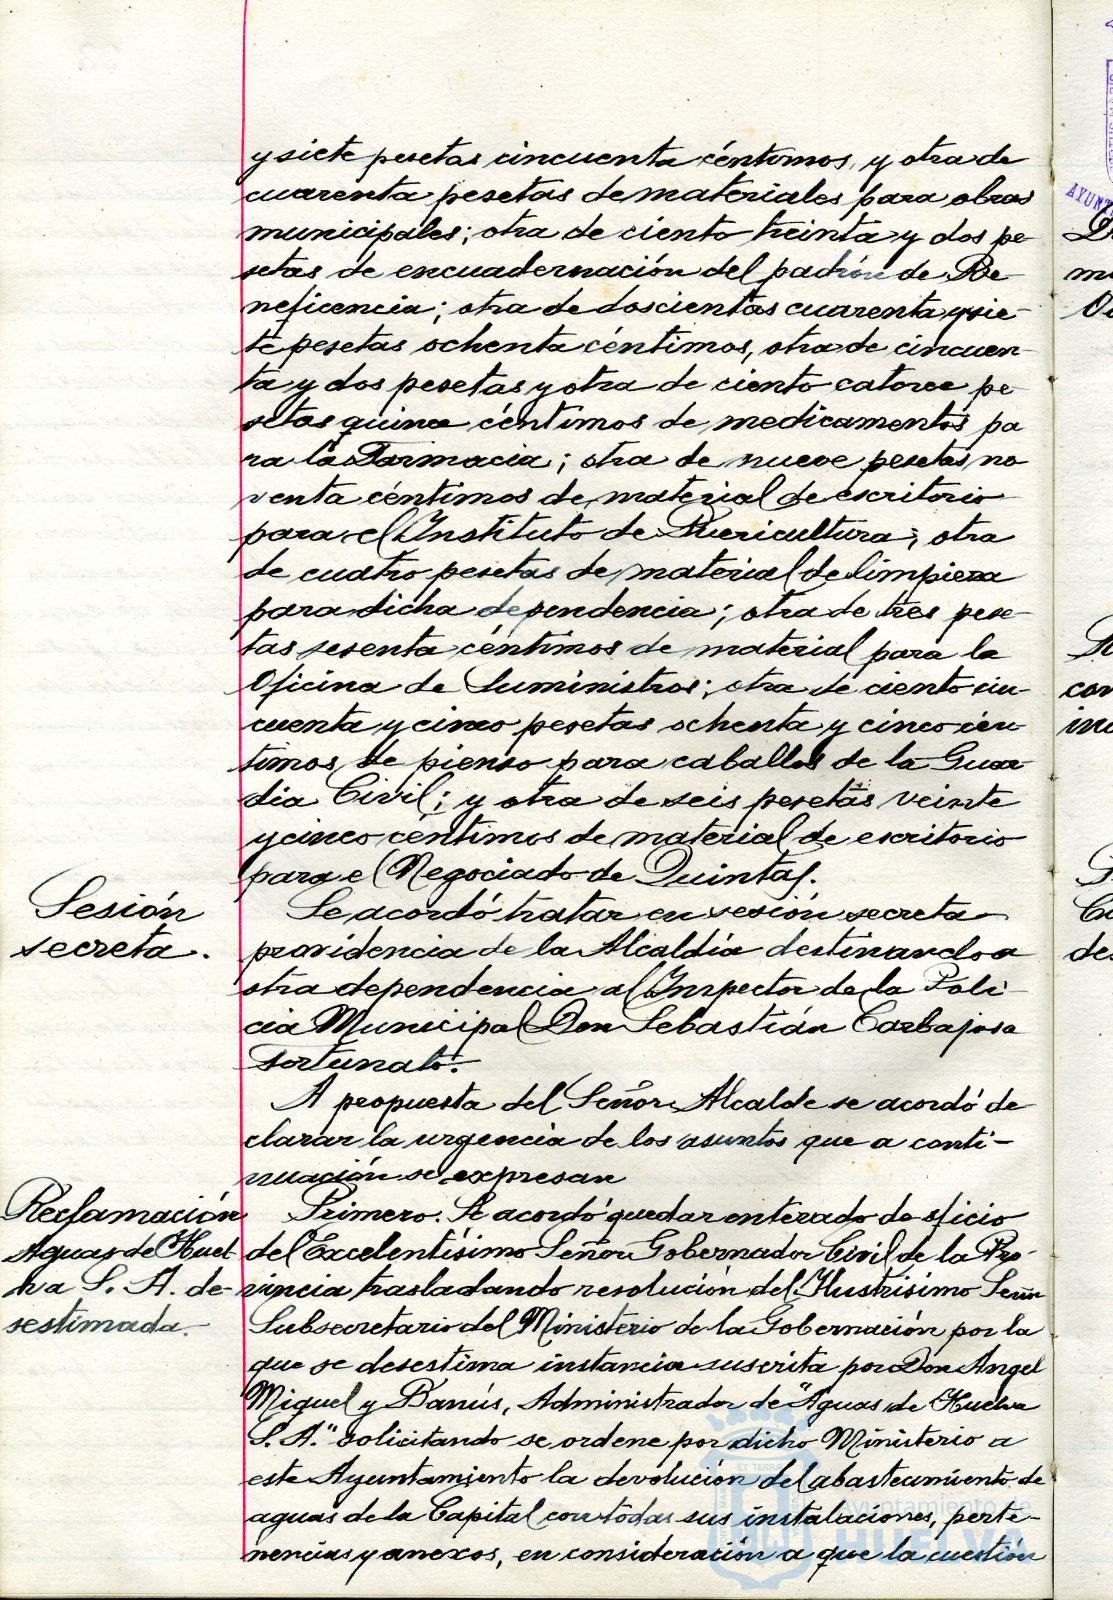 y siete pesetas cincuenta céntimos, y otra de
cuarenta pesetas de materiales para obras
municipales; otra de ciento treinta y dos pe
setas de encuadernación del padrón de Be-
neficencia; otra de doscientas cuarenta y sie-
te pesetas ochenta céntimos, otra de cincuen-
ta y dos pesetas y otra de ciento catorce pe
setas quince céntimos de medicamentos pa
ra la Farmacia; otra de nueve pesetas no
venta céntimos de material de escritorio
para el Instituto de Puericultura; otra
de cuatro pesetas de material de limpieza
para dicha dependencia; otra de tres pese-
tas sesenta céntimos de material para la
Oficina de Suministros; otra de ciento cin
cuenta y cinco pesetas ochenta y cinco cén
timos de pienso para caballos de la Guar
dia Civil; y otra de seis pesetas veinte
y cinco céntimos de material de escritorio
para el Negociado de Quintas.
Sesión
secreta.
Se acordó tratar en sesión secreta
providencia de la Alcaldía destinando a
otra dependencia al Inspector de la Poli-
cia Municipal Don Sebastián Carbajosa
Fortunato.
A propuesta del Señor Alcalde se acordó de
clarar la urgencia de los asuntos que a conti-
nuación se expresan
Reclamación
Aguas de Huel
va S. A. de-
sestimada.
Primero. Se acordó quedar enterado de oficio
del Excelentísimo Señor Gobernador Civil de la Pro-
vincia trasladando resolución del Ilustrísimo Señor
Subsecretario del Ministerio de la Gobernación por la
que se desestima instancia suscrita por Don Angel
Miguel y Banús, Administrador de "Aguas de Huelva
S. A." solicitando se ordene por dicho Ministerio a
este Ayuntamiento la devolución del abastecimiento de
aguas de la Capital con todas sus instalaciones, perte-
nencias y anexos, en consideración a que la cuestión
Ayuntamiento de
HUELVA